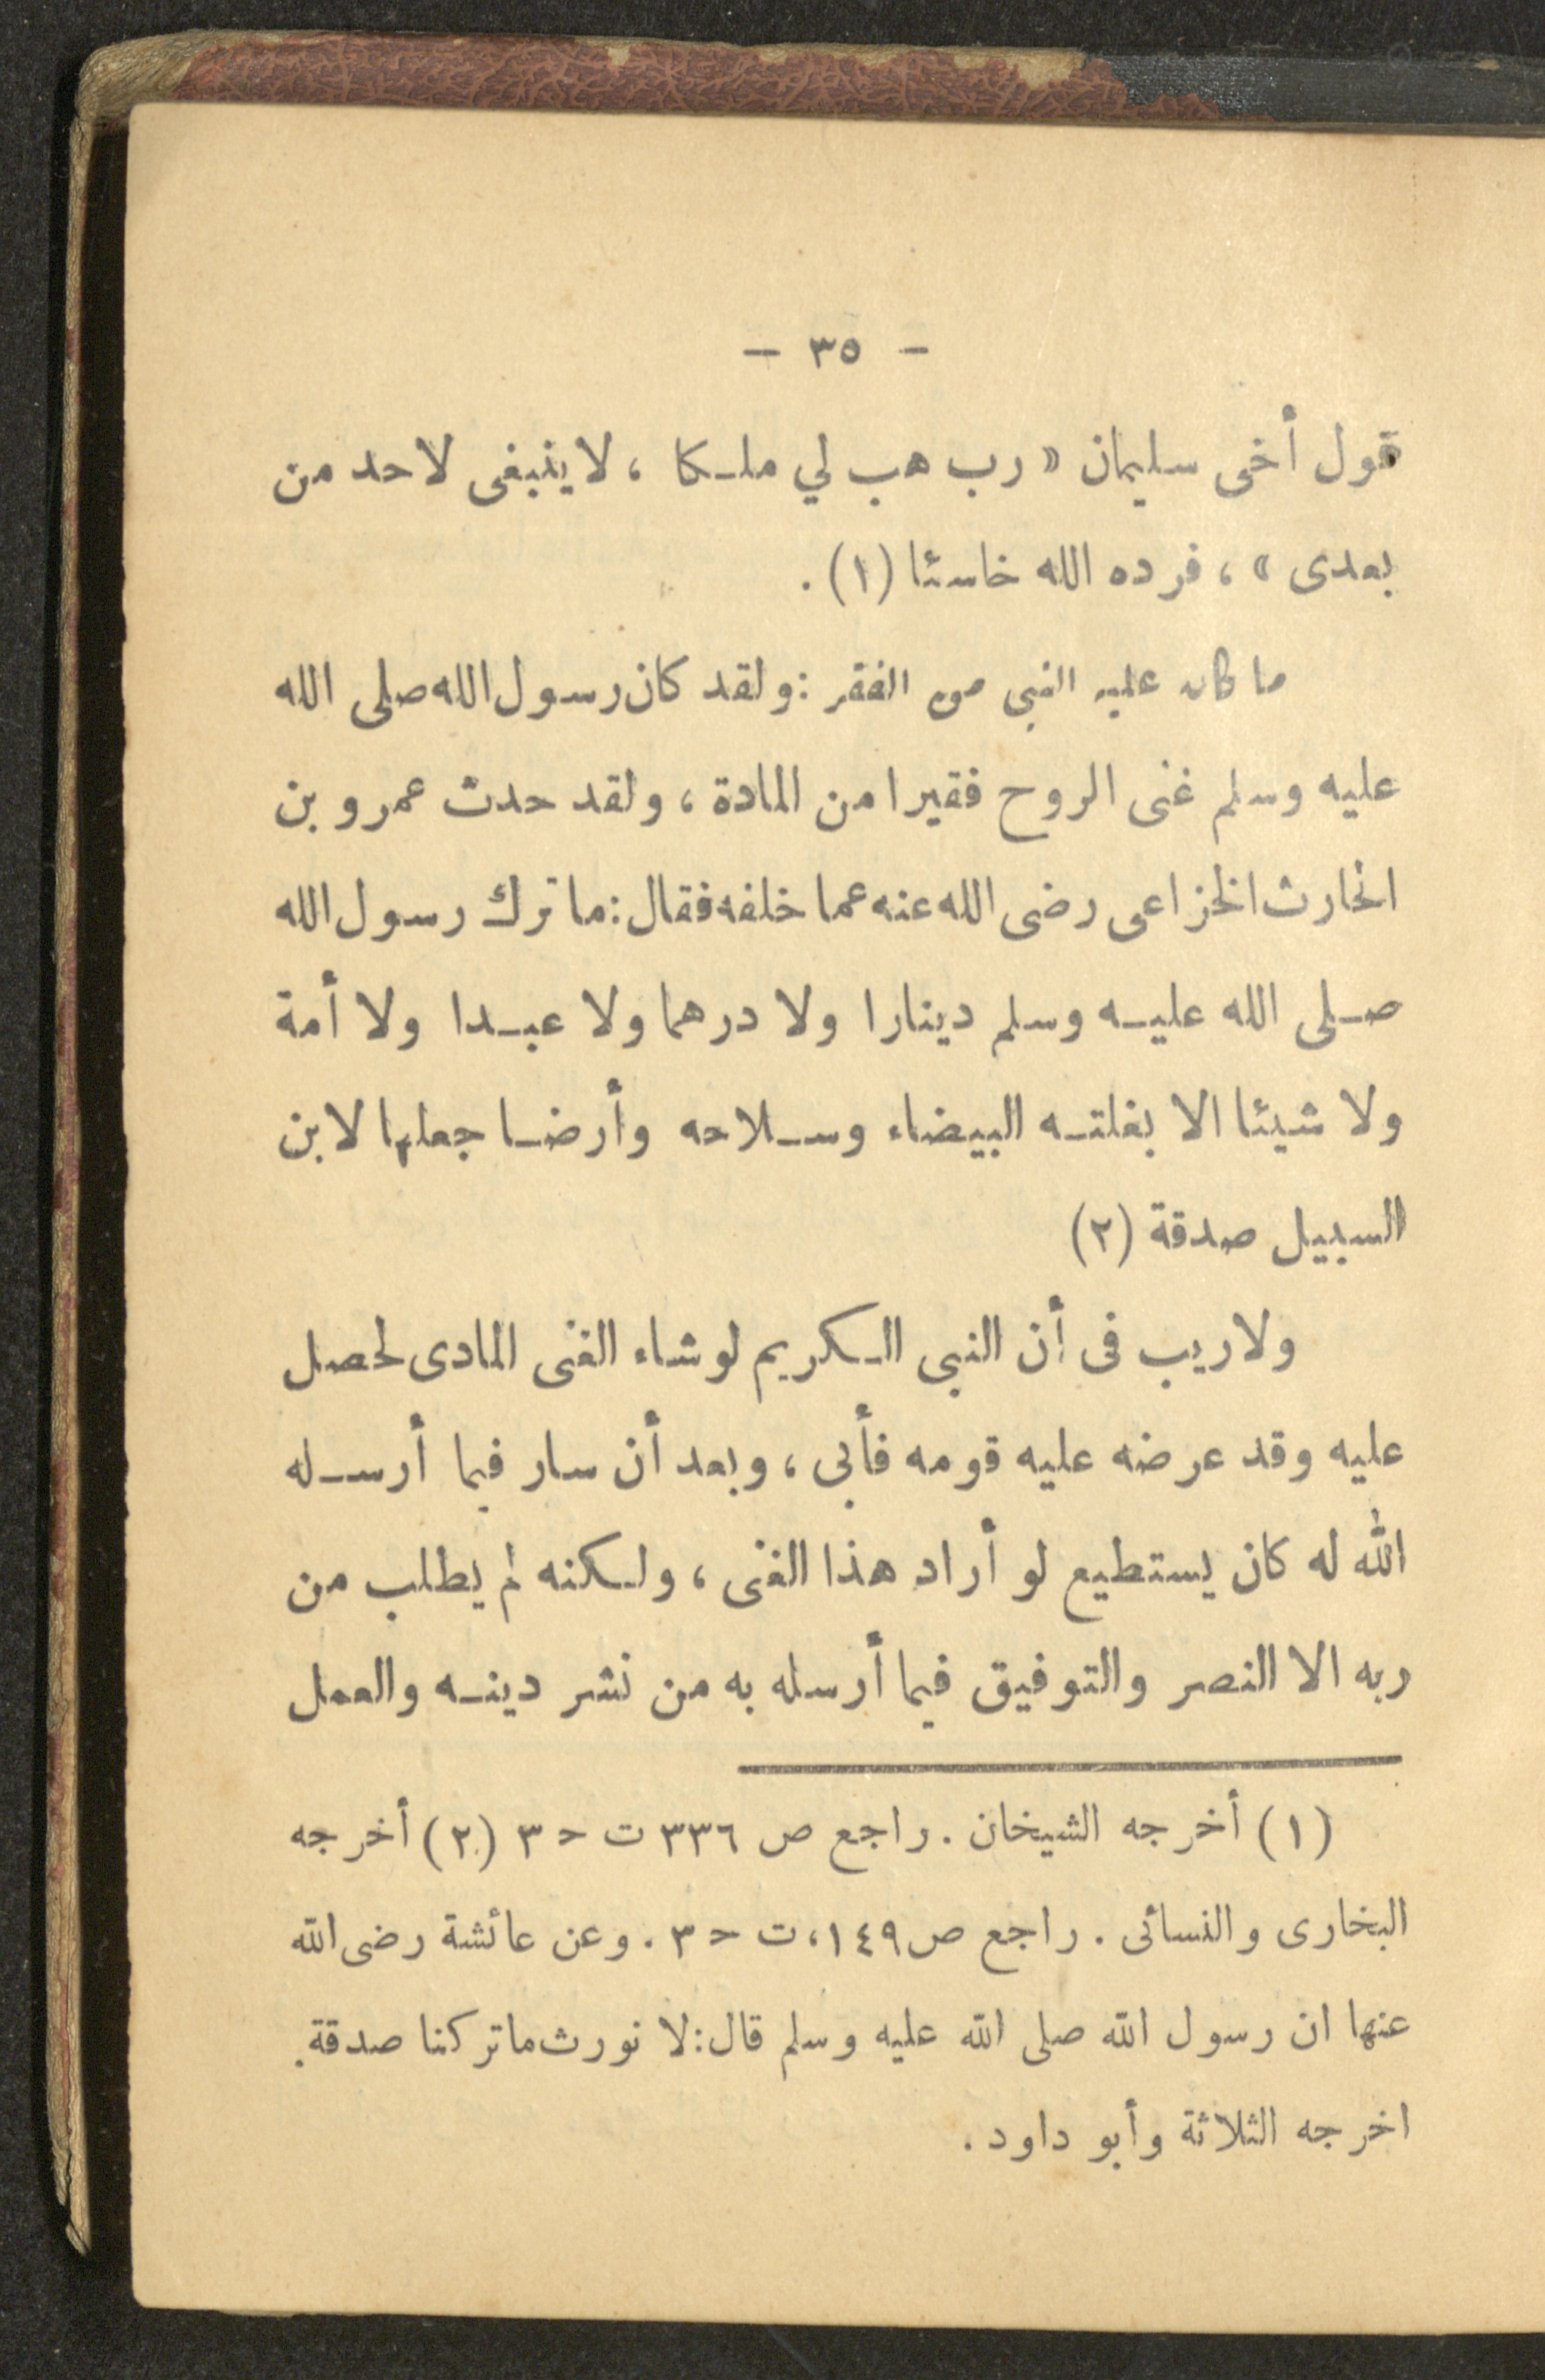 - ٣٥ -
قول أخى سليمان « رب هب لي ملكا ، لا ينبغى لاحد من
بعدى » ، فرده الله خاسئا (١) .
ما كان عليه النبى من الفقر : ولقد كان رسول الله صلى الله
عليه وسلم غنى الروح فقيرا من المادة ، ولقد حدث عمرو بن
الحارث الخزاعى رضى الله عنه عما خلفه فقال : ما ترك رسول الله
صلى الله عليه وسلم دينارا ولا درهما ولا عبدا ولا أمة
ولا شيئا الا بغلته البيضاء وسلاحه وأرضا جعلها لابن
السبيل صدقة (٢)
ولا ريب فى أن النبى الكريم لو شاء الغنى المادى لحصل
عليه وقد عرضه عليه قومه فأبى ، وبعد أن سار فيما أرسله
الله له كان يستطيع لو أراد هذا الغنى ، ولكنه لم يطلب من
ربه الا النصر والتوفيق فيما أرسله به من نشر دينه والعمل
(١) أخرجه الشيخان . راجع ص ٣٣٦ ت ح ٣ (٢) أخرجه
البخارى والنسائى . راجع ص ١٤٩ ، ت ح ٣ . وعن عائشة رضى الله
عنها ان رسول الله صلى الله عليه وسلم قال : لا نورث ما تركنا صدقة .
اخرجه الثلاثة وأبو داود .